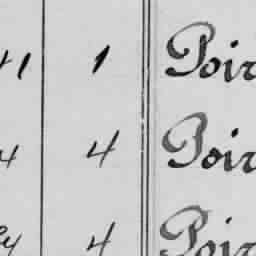 41 1 Poir
4 4 Poir
4 Poir